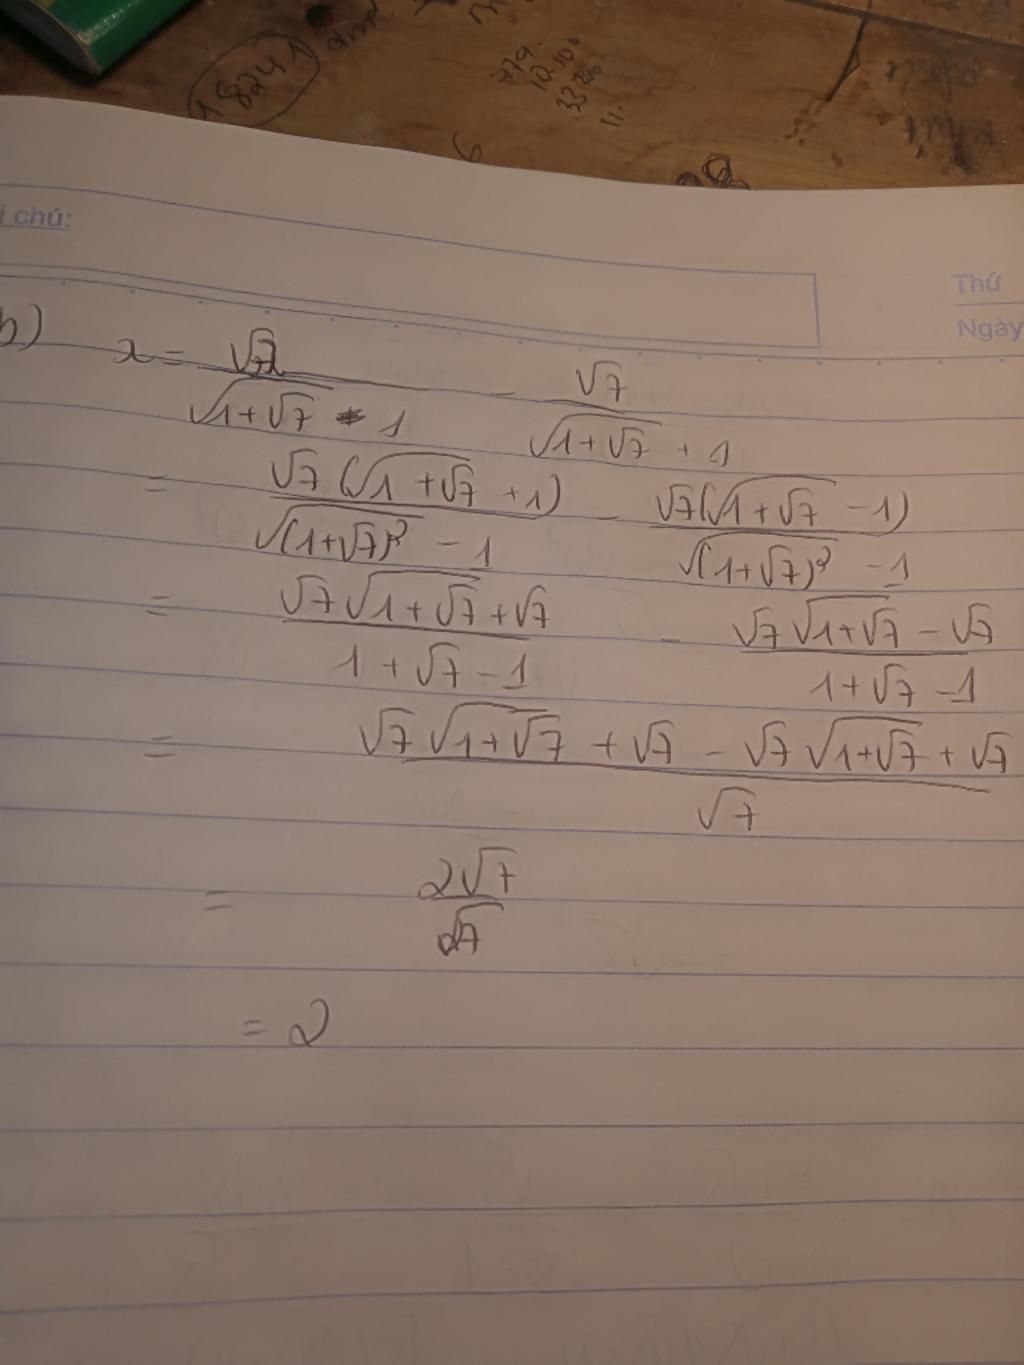 18241
779.
10.100
11.
6
i chú:
Thứ
Ngày
b) x = √7 / (√(1+√7) - 1) - √7 / (√(1+√7) + 1)
= √7(√(1+√7) + 1) / (√(1+√7)² - 1) - √7(√(1+√7) - 1) / (√(1+√7)² - 1)
= (√7√(1+√7) + √7) / (1 + √7 - 1) - (√7√(1+√7) - √7) / (1 + √7 - 1)
= (√7√(1+√7) + √7 - √7√(1+√7) + √7) / √7
= 2√7 / √7
= 2